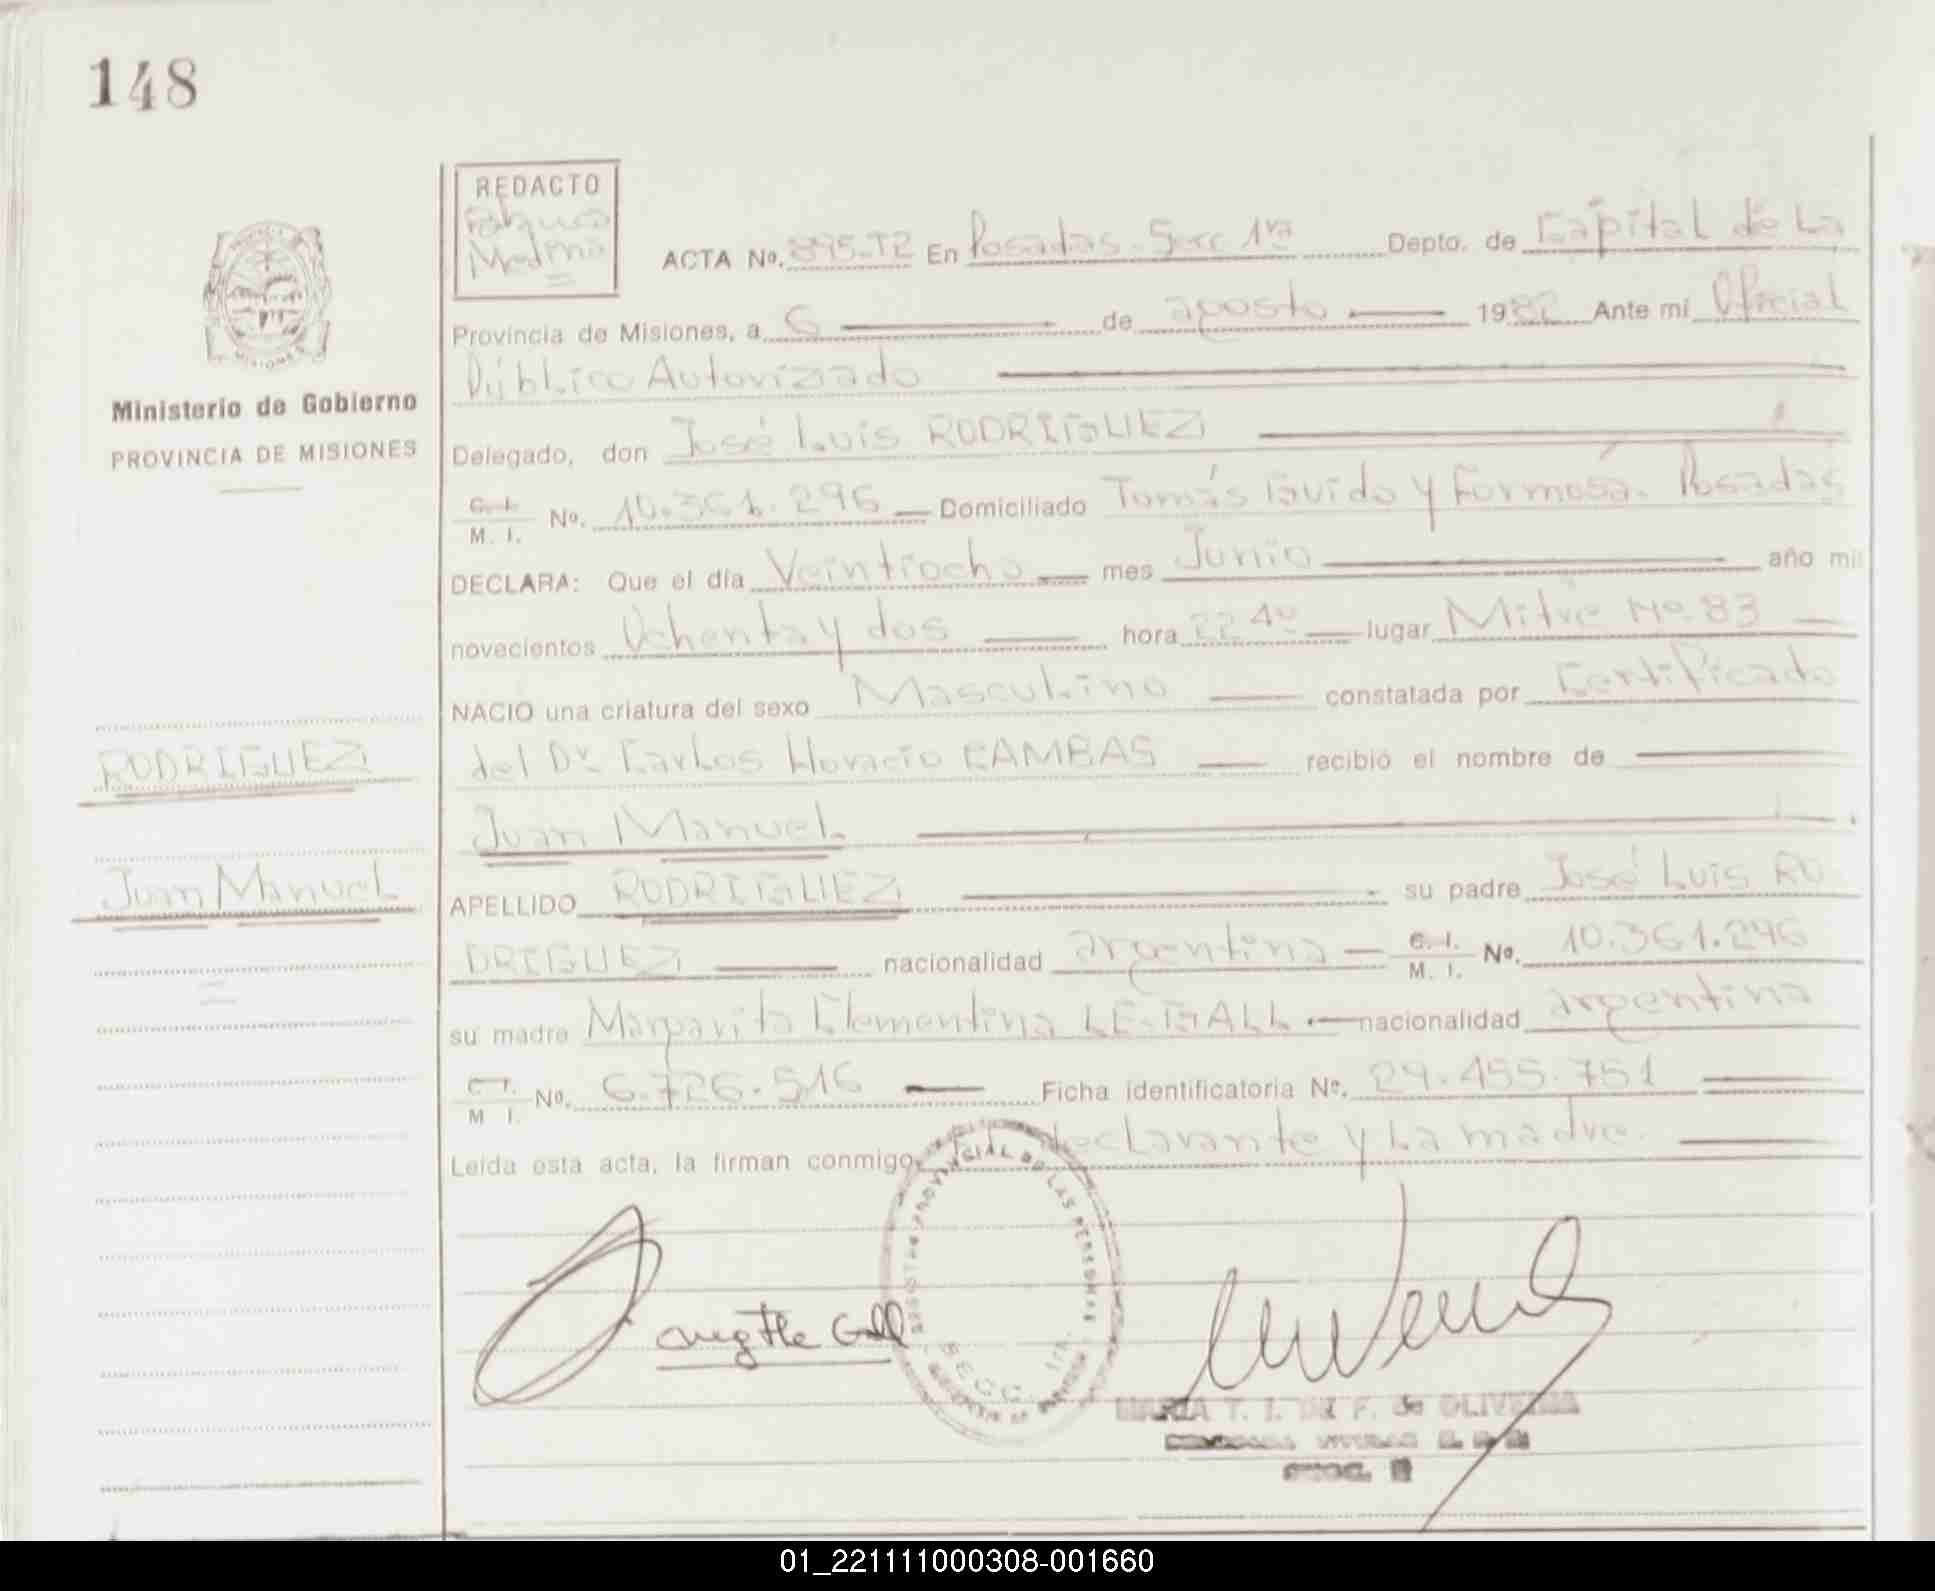 148
REDACTO
Medina
ACTA Nº. 895-T2 En Posadas-Secc 1ra Depto. de Capital de La
Provincia de Misiones, a 6 de agosto 1982 Ante mi Oficial
Público Autorizado
Delegado, don José Luis RODRIGUEZ
C. I. M. I. Nº. 10.361.296 Domiciliado Tomás Guido y Formosa. Posadas
DECLARA: Que el día Veintiocho mes Junio año mil
novecientos Ochenta y dos hora 22 40 lugar Mitre Nº 83
NACIO una criatura del sexo Masculino constatada por Certificado
del Dr. Carlos Horacio CAMBAS recibió el nombre de
Juan Manuel.
APELLIDO RODRIGUEZ su padre José Luis RO
DRIGUEZ nacionalidad argentina C. I. M. I. Nº. 10.361.296
su madre Margarita Clementina LE-GALL nacionalidad argentina
C. I. M I. Nº. 6.726.516 Ficha identificatoria Nº. 29.455.751
Leída esta acta, la firman conmigo, El declarante y La madre.
Ministerio de Gobierno
PROVINCIA DE MISIONES
RODRIGUEZ
Juan Manuel
REGISTRO PROVINCIAL DE LAS PERSONAS
SECC. 1ra.
MARIA T. I. F. de OLIVEIRA
01_221111000308-001660